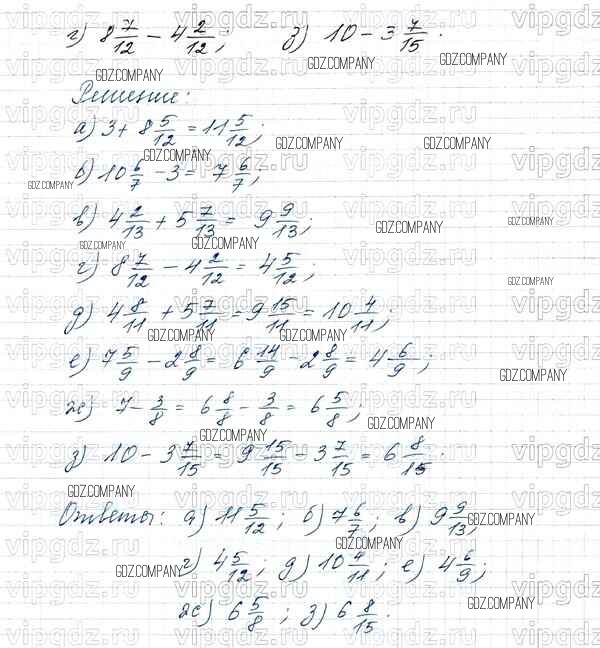 г) 8 7/12 − 4 2/12; з) 10 − 3 7/15.
Решение:
а) 3 + 8 5/12 = 11 5/12;
б) 10 6/7 − 3 = 7 6/7;
в) 4 2/13 + 5 7/13 = 9 9/13;
г) 8 7/12 − 4 2/12 = 4 5/12;
д) 4 8/11 + 5 7/11 = 9 15/11 = 10 4/11;
е) 7 5/9 − 2 8/9 = 6 14/9 − 2 8/9 = 4 6/9;
ж) 7 − 3/8 = 6 8/8 − 3/8 = 6 5/8;
з) 10 − 3 7/15 = 9 15/15 − 3 7/15 = 6 8/15.
Ответы: а) 11 5/12; б) 7 6/7; в) 9 9/13;
г) 4 5/12; д) 10 4/11; е) 4 6/9;
ж) 6 5/8; з) 6 8/15.
vipgdz.ru
GDZ.COMPANY